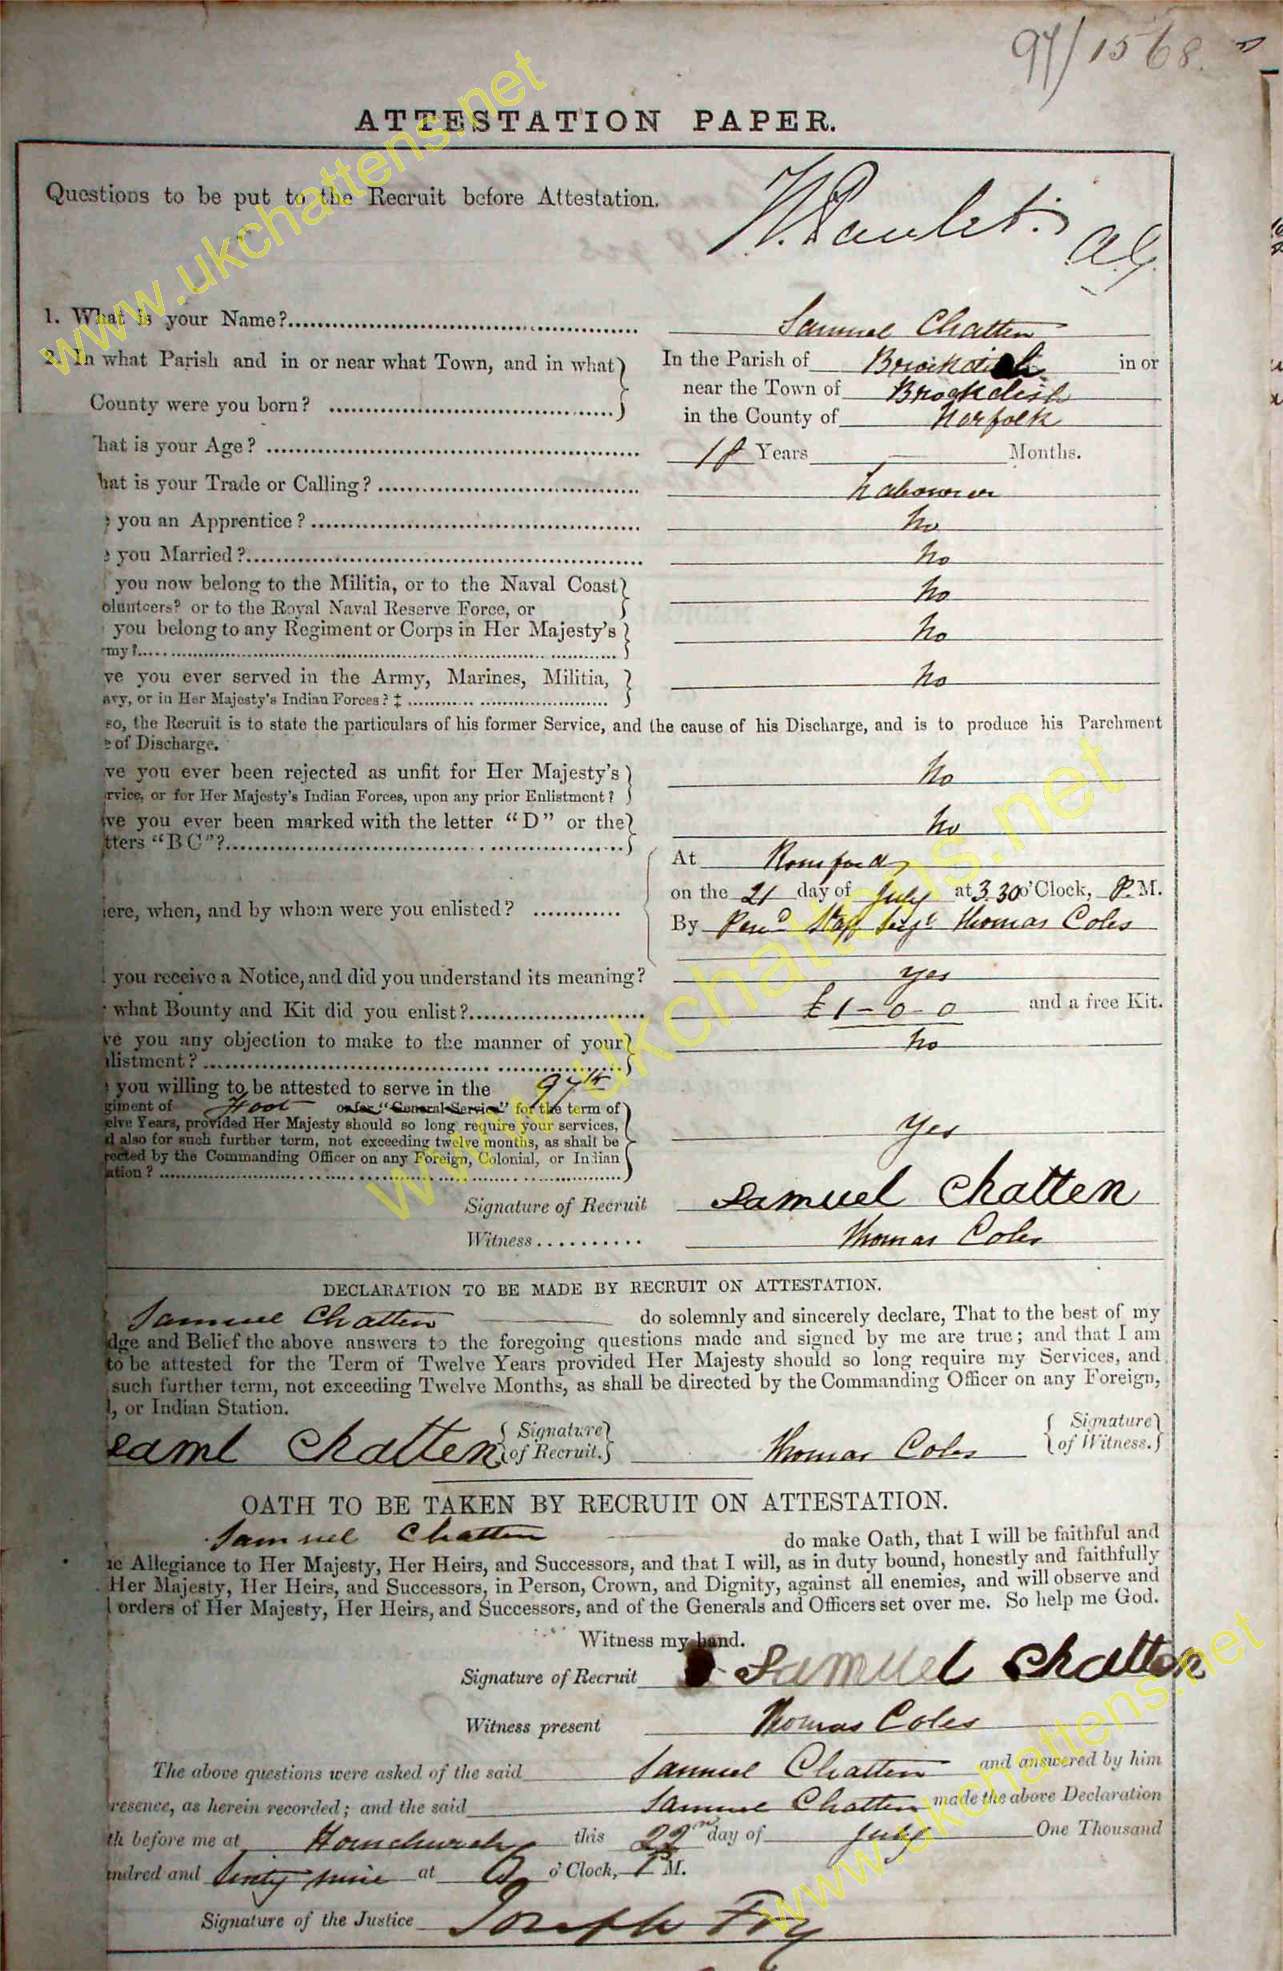 97/1568.
ATTESTATION PAPER.
Questions to be put to the Recruit before Attestation.
W. Paulet.
A.G.
1. What is your Name? Samuel Chatten
2. In what Parish and in or near what Town, and in what In the Parish of Brockdish in or
near the Town of Brockdish
County were you born? in the County of Norfolk
hat is your Age? 18 Years — Months.
hat is your Trade or Calling? Labourer
you an Apprentice? No
you Married? No
you now belong to the Militia, or to the Naval Coast No
olunteers? or to the Royal Naval Reserve Force, or
you belong to any Regiment or Corps in Her Majesty's No
my?
ve you ever served in the Army, Marines, Militia, No
avy, or in Her Majesty's Indian Forces? ‡
so, the Recruit is to state the particulars of his former Service, and the cause of his Discharge, and is to produce his Parchment
e of Discharge.
ve you ever been rejected as unfit for Her Majesty's No
rvice, or for Her Majesty's Indian Forces, upon any prior Enlistment?
ve you ever been marked with the letter "D" or the No
tters "BC"?
At Romford
on the 21 day of July at 3.30 o'Clock, P.M.
ere, when, and by whom were you enlisted?
By Pen'd Staff Serjt Thomas Coles
you receive a Notice, and did you understand its meaning? Yes
what Bounty and Kit did you enlist? £1-0-0 and a free Kit.
ve you any objection to make to the manner of your No
listment?
you willing to be attested to serve in the 97th
giment of Foot or for "General Service" for the term of
elve Years, provided Her Majesty should so long require your services, Yes
d also for such further term, not exceeding twelve months, as shall be
rected by the Commanding Officer on any Foreign, Colonial, or Indian
ation?
Signature of Recruit Samuel Chatten
Witness Thomas Coles
DECLARATION TO BE MADE BY RECRUIT ON ATTESTATION.
Samuel Chatten do solemnly and sincerely declare, That to the best of my
dge and Belief the above answers to the foregoing questions made and signed by me are true; and that I am
to be attested for the Term of Twelve Years provided Her Majesty should so long require my Services, and
such further term, not exceeding Twelve Months, as shall be directed by the Commanding Officer on any Foreign,
l, or Indian Station.
Saml Chatten Signature of Recruit. Thomas Coles Signature of Witness.
OATH TO BE TAKEN BY RECRUIT ON ATTESTATION.
Samuel Chatten do make Oath, that I will be faithful and
ue Allegiance to Her Majesty, Her Heirs, and Successors, and that I will, as in duty bound, honestly and faithfully
Her Majesty, Her Heirs, and Successors, in Person, Crown, and Dignity, against all enemies, and will observe and
l orders of Her Majesty, Her Heirs, and Successors, and of the Generals and Officers set over me. So help me God.
Witness my hand.
Signature of Recruit Samuel Chatten
Witness present Thomas Coles
The above questions were asked of the said Samuel Chatten and answered by him
resence, as herein recorded; and the said Samuel Chatten made the above Declaration
th before me at Hornchurch this 22nd day of July One Thousand
ndred and Sixty nine at o'Clock, P.M.
Signature of the Justice Joseph Fry
www.ukchattens.net
www.ukchattens.net
www.ukchattens.net